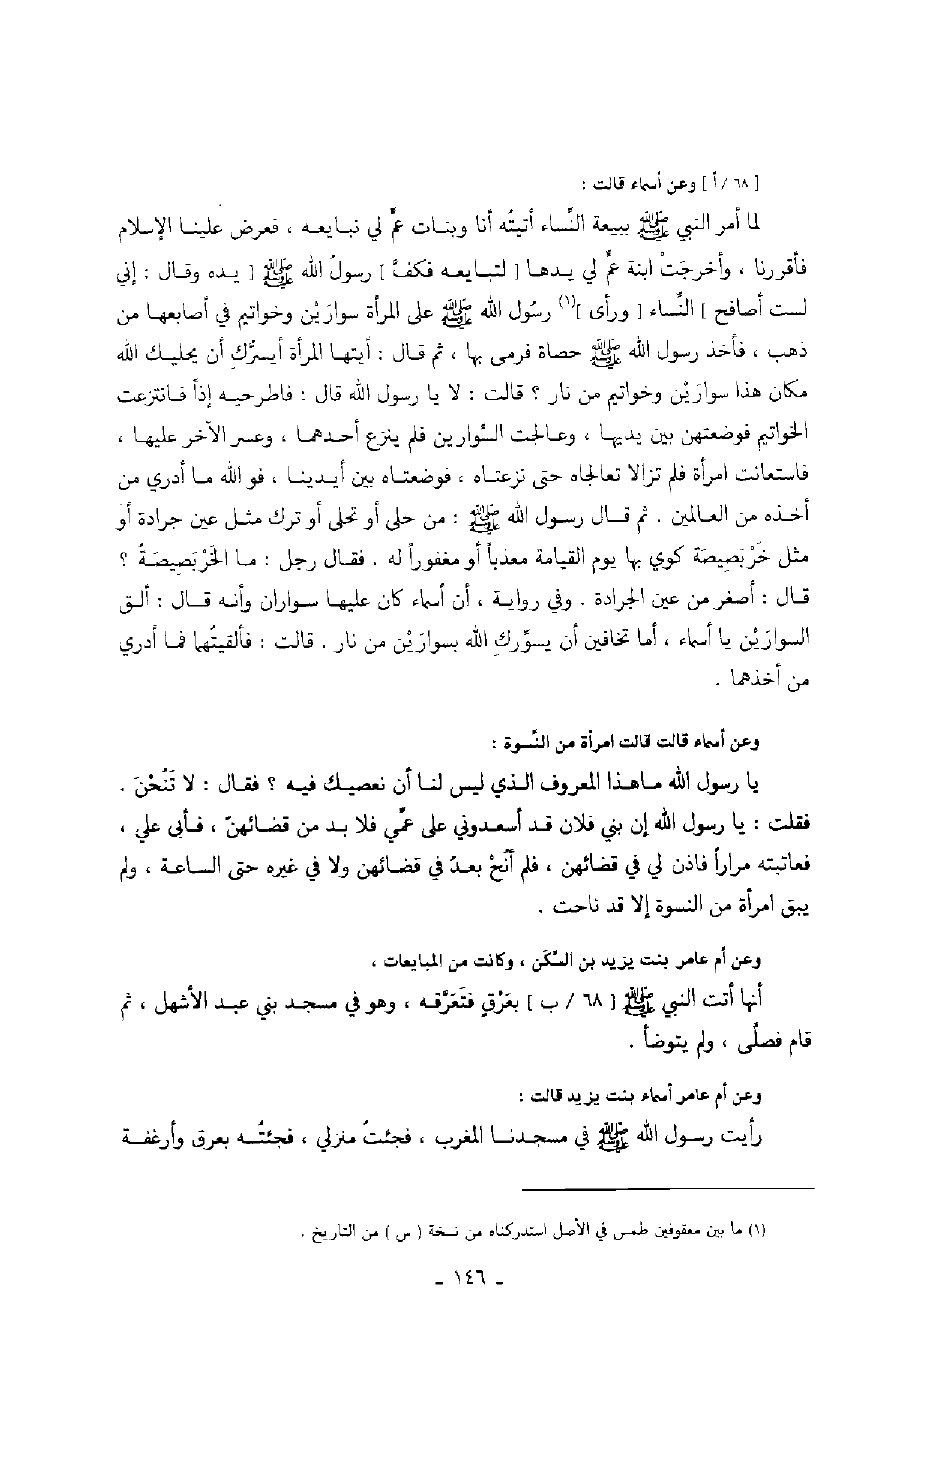 [ ٦٨ / أ ] وعن أسماء قالت :
لما أمر النبي ﷺ ببيعة النِّساء أتيتُه أنا وبنات عمٍّ لي نبايعه ، فعرض علينا الإسلام
فأقررنا ، وأخرجَتْ ابنة عمٍّ لي يدها [ لتبايعه فكفَّ ] رسولُ الله ﷺ [ يده وقال : إني
لست أصافح ] النِّساء [ ورأى ](١) رسُول الله ﷺ على المرأة سوارَيْن وخواتيم في أصابعها من
ذهب ، فأخذ رسول الله ﷺ حصاة فرمى بها ، ثم قال : أيتها المرأة أيسرُّكِ أن يحليك الله
مكان هذا سوارَيْن وخواتيم من نار ؟ قالت : لا يا رسول الله قال : فاطرحيه إذاً فانتزعت
الخواتيم فوضعتهن بين يديها ، وعالجت السِّوارين فلم ينزع أحدهما ، وعسر الآخر عليها ،
فاستعانت امرأة فلم تزالا تعالجاه حتى نزعتاه ، فوضعتاه بين أيدينا ، فو الله ما أدري من
أخذه من العالمين . ثم قال رسول الله ﷺ : من حلي أو تحلى أو ترك مثل عين جرادة أو
مثل خَرْبَصِيصَة كوي بها يوم القيامة معذباً أو مغفوراً له . فقال رجل : ما الخَرْبَصِيصَةُ ؟
قال : أصغر من عين الجرادة . وفي رواية ، أن أسماء كان عليها سواران وأنه قال : ألق
السوارَيْن يا أسماء ، أما تخافين أن يسوِّركِ الله بسوارَيْن من نار . قالت : فألقيتُها فما أدري
من أخذهما .
وعن أسماء قالت قالت امرأة من النِّسوة :
يا رسول الله ماهذا المعروف الذي ليس لنا أن نعصيك فيه ؟ فقال : لا تَنُحْنَ .
فقلت : يا رسول الله إن بني فلان قد أسعدوني على عمِّي فلا بد من قضائهنّ ، فأبى علي ،
فعاتبته مراراً فاذن لي في قضائهن ، فلم أنُحْ بعدُ في قضائهن ولا في غيره حتى الساعة ، ولم
يبق امرأة من النسوة إلا قد ناحت .
وعن أم عامر بنت يزيد بن السَّكَن ، وكانت من المبايعات ،
أنها أتت النبي ﷺ [ ٦٨ / ب ] بعَرْقٍ فتَعَرَّقه ، وهو في مسجد بني عبد الأشهل ، ثم
قام فصلَّى ، ولم يتوضأ .
وعن أم عامر أسماء بنت يزيد قالت :
رأيت رسول الله ﷺ في مسجدنا المغرب ، فجئتُ منزلي ، فجئتُه بعرق وأرغفة
(١) ما بين معقوفين طمس في الأصل استدركناه من نسخة ( س ) من التاريخ .
- ١٤٦ -